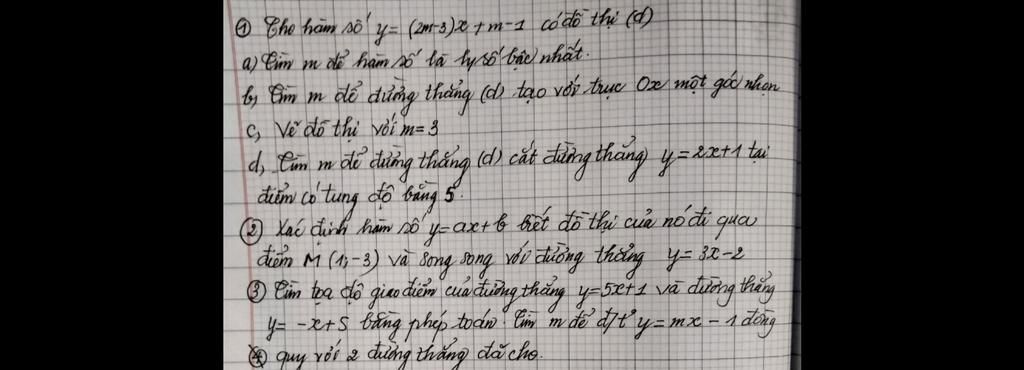 ① Cho hàm số y = (2m-3)x + m-1 có đồ thị (d)
a) Tìm m để hàm số là hàm số bậc nhất.
b, Tìm m để đường thẳng (d) tạo với trục Ox một góc nhọn
c, Vẽ đồ thị với m = 3
d, Tìm m để đường thẳng (d) cắt đường thẳng y = 2x+1 tại
điểm có tung độ bằng 5.
② Xác định hàm số y = ax + b biết đồ thị của nó đi qua
điểm M (1; -3) và song song với đường thẳng y = 3x-2
③ Tìm tọa độ giao điểm của đường thẳng y = 5x+1 và đường thẳng
y = -x+5 bằng phép toán. Tìm m để đ/t² y = mx - 1 đồng
quy với 2 đường thẳng đã cho.